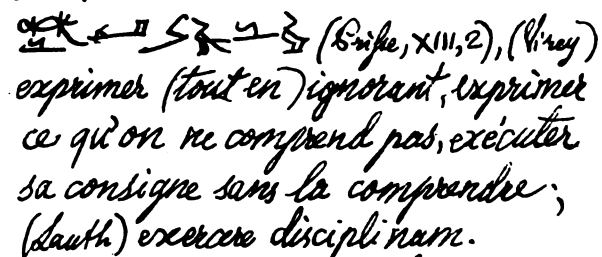 (Prisse, XIII, 2), (Virey)
exprimer (tout en) ignorant, exprimer
ce qu'on ne comprend pas, exécuter
sa consigne sans la comprendre;
(Lauth) exercere disciplinam.